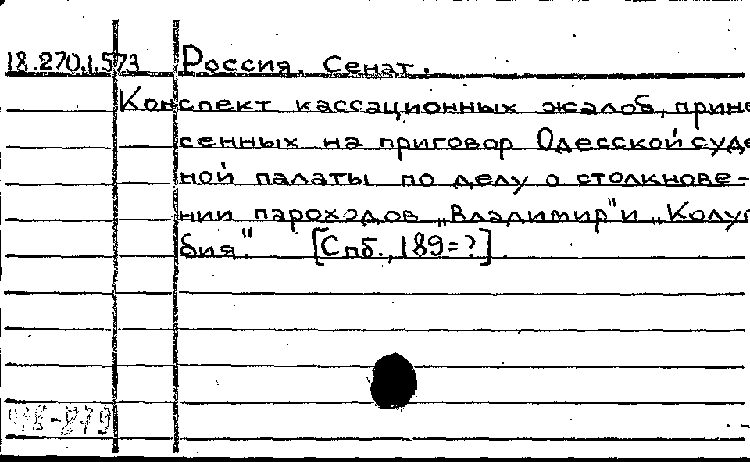 18.270.1.573 Россия. Сенат.
Конспект кассационных жалоб, прине
сенных на приговор Одесской суде
ной палаты по делу о столкнове-
нии пароходов „Владимир" и „Колум
бия". [Спб., 189=?].